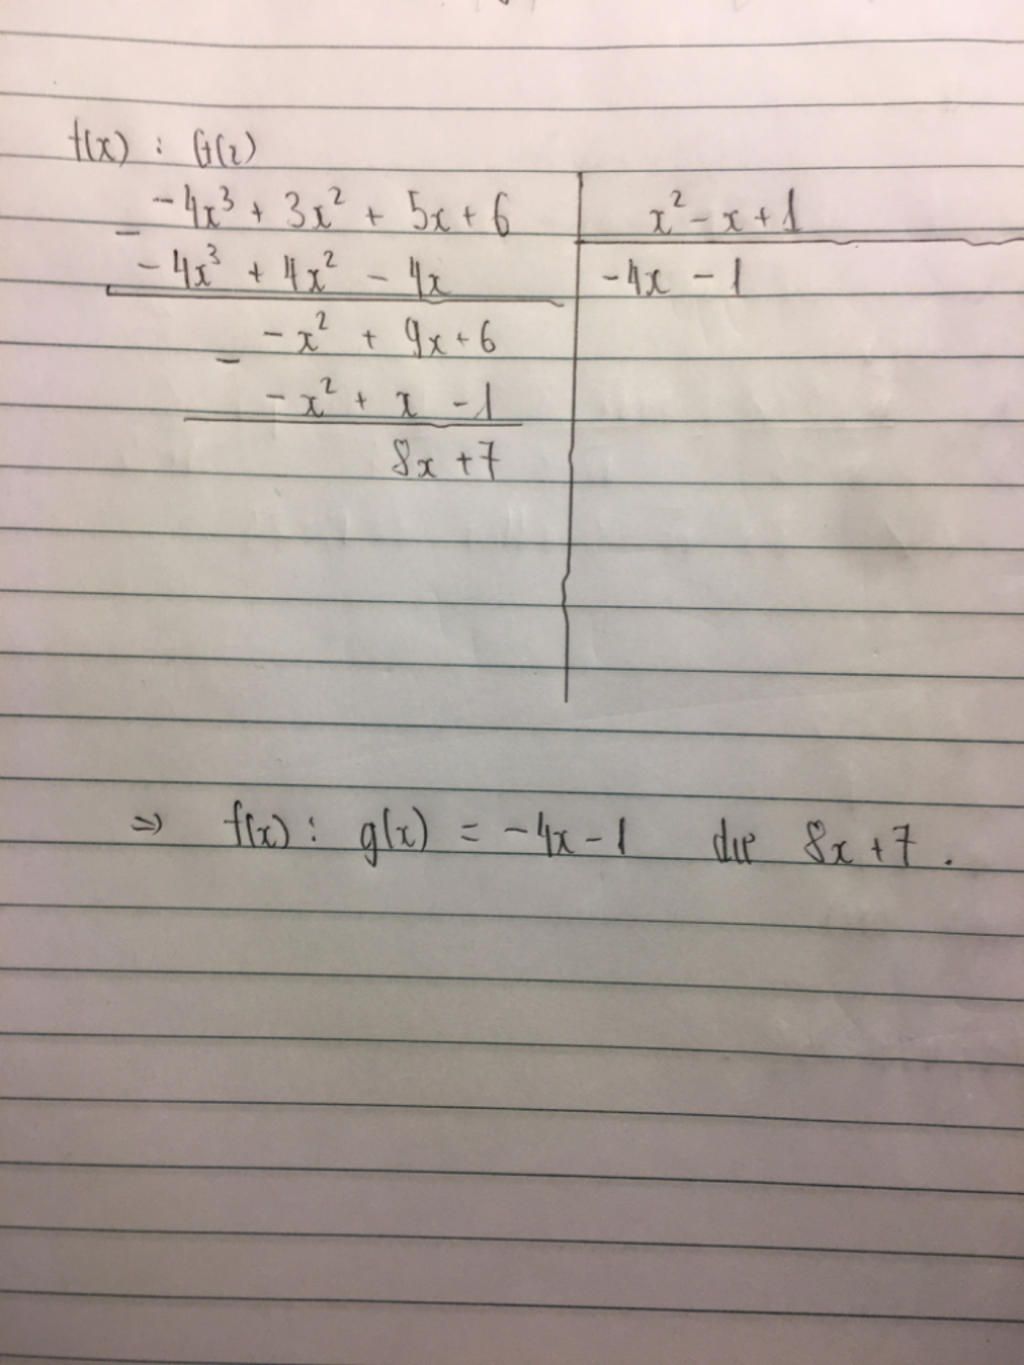 f(x) : G(x)
-4x³ + 3x² + 5x + 6 | x² - x + 1
- -4x³ + 4x² - 4x | -4x - 1
-x² + 9x + 6
- -x² + x - 1
8x + 7
⇒ f(x) : g(x) = -4x - 1 dư 8x + 7 .